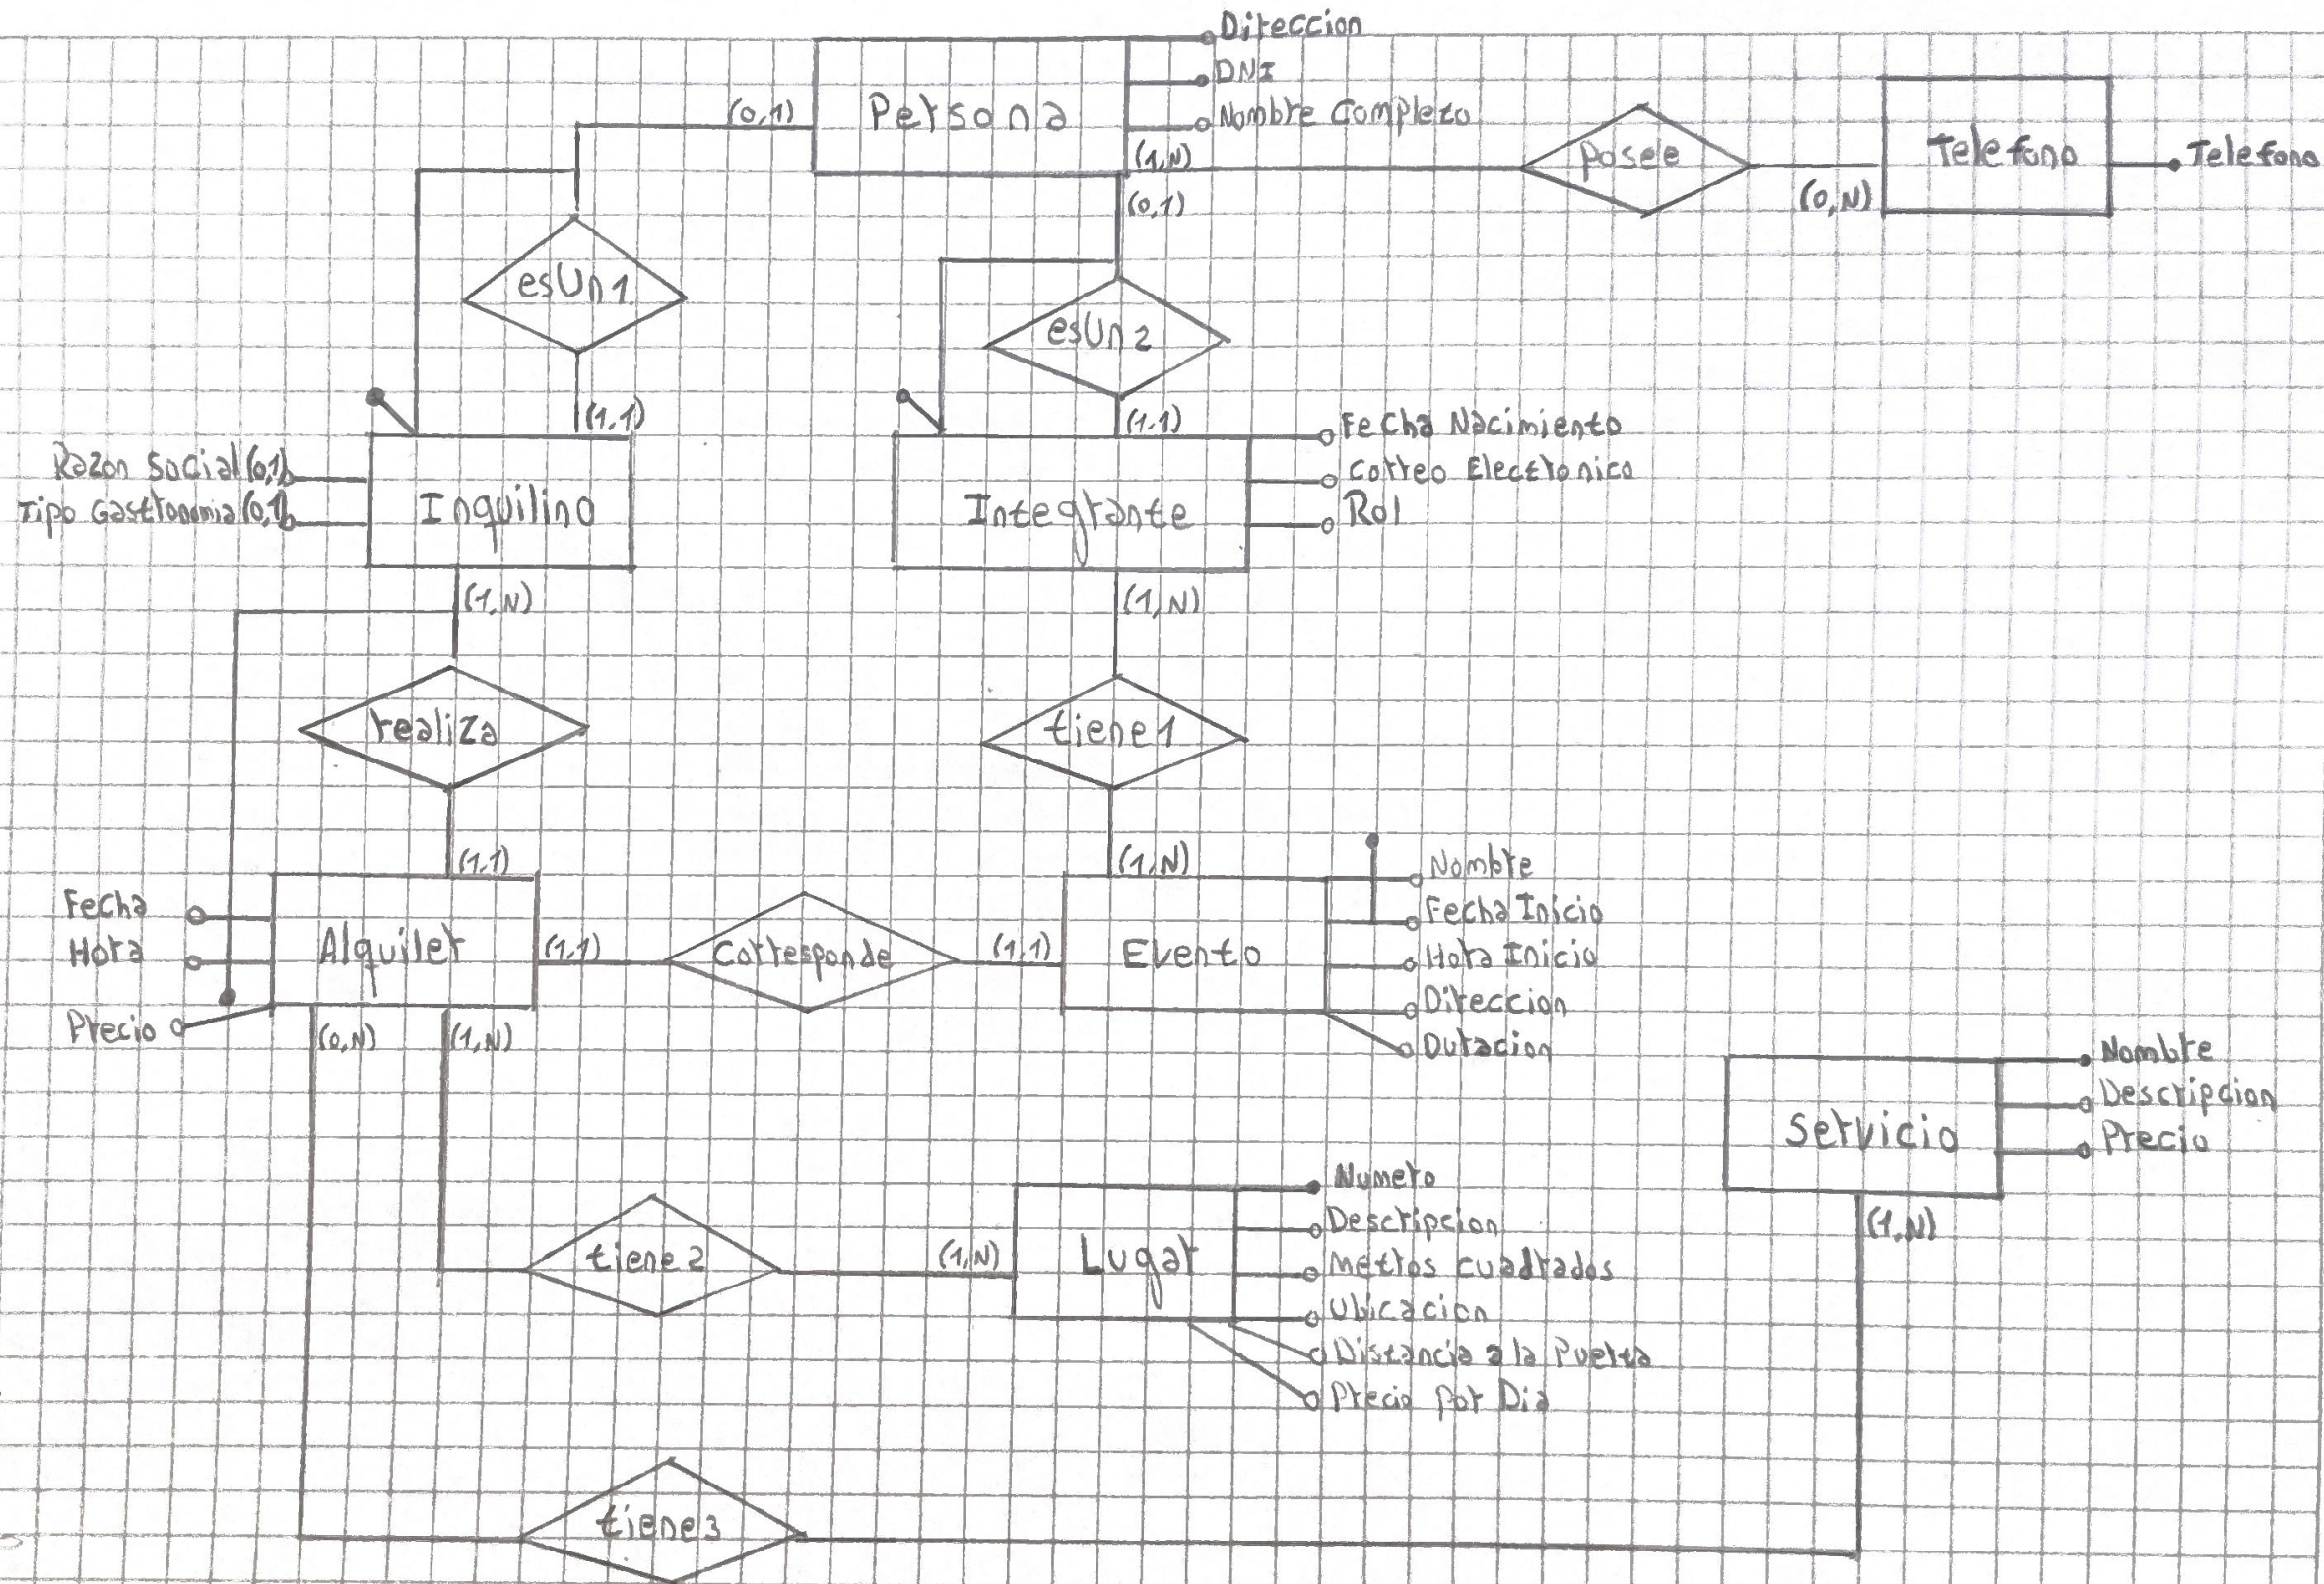 Direccion
DNI
Nombre Completo
(0,1)
Persona
(1,N)
(0,1)
posee
(0,N)
Telefono
Telefono
esUn1
(1,1)
esUn2
(1,1)
Razon Social (0,1)
Tipo Gastronomia (0,1)
Inquilino
Integrante
Fecha Nacimiento
Correo Electronico
Rol
(1,N)
(1,N)
realiza
tiene1
(1,1)
(1,N)
Fecha
Hora
Precio
Alquiler
(1,1)
Corresponde
(1,1)
Evento
Nombre
Fecha Inicio
Hora Inicio
Direccion
Duracion
(0,N)
(1,N)
Servicio
Nombre
Descripcion
Precio
(1,N)
tiene2
(1,N)
Lugar
Numero
Descripcion
Metros cuadrados
Ubicacion
Distancia a la Puerta
Precio por Dia
tiene3